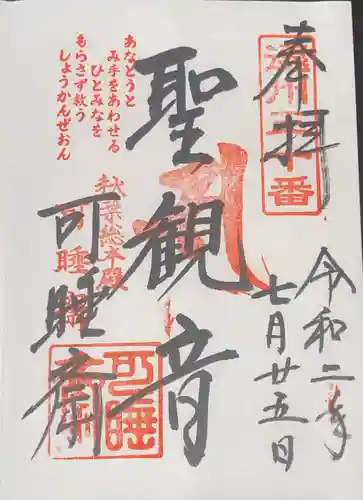 奉拝
令和二年
七月廿五日
聖観音
可睡斎
遠州三十番
秋葉総本殿
可睡斎
あなとうと
み手をあわせる
ひとみなを
もらさず救う
しょうかんぜおん